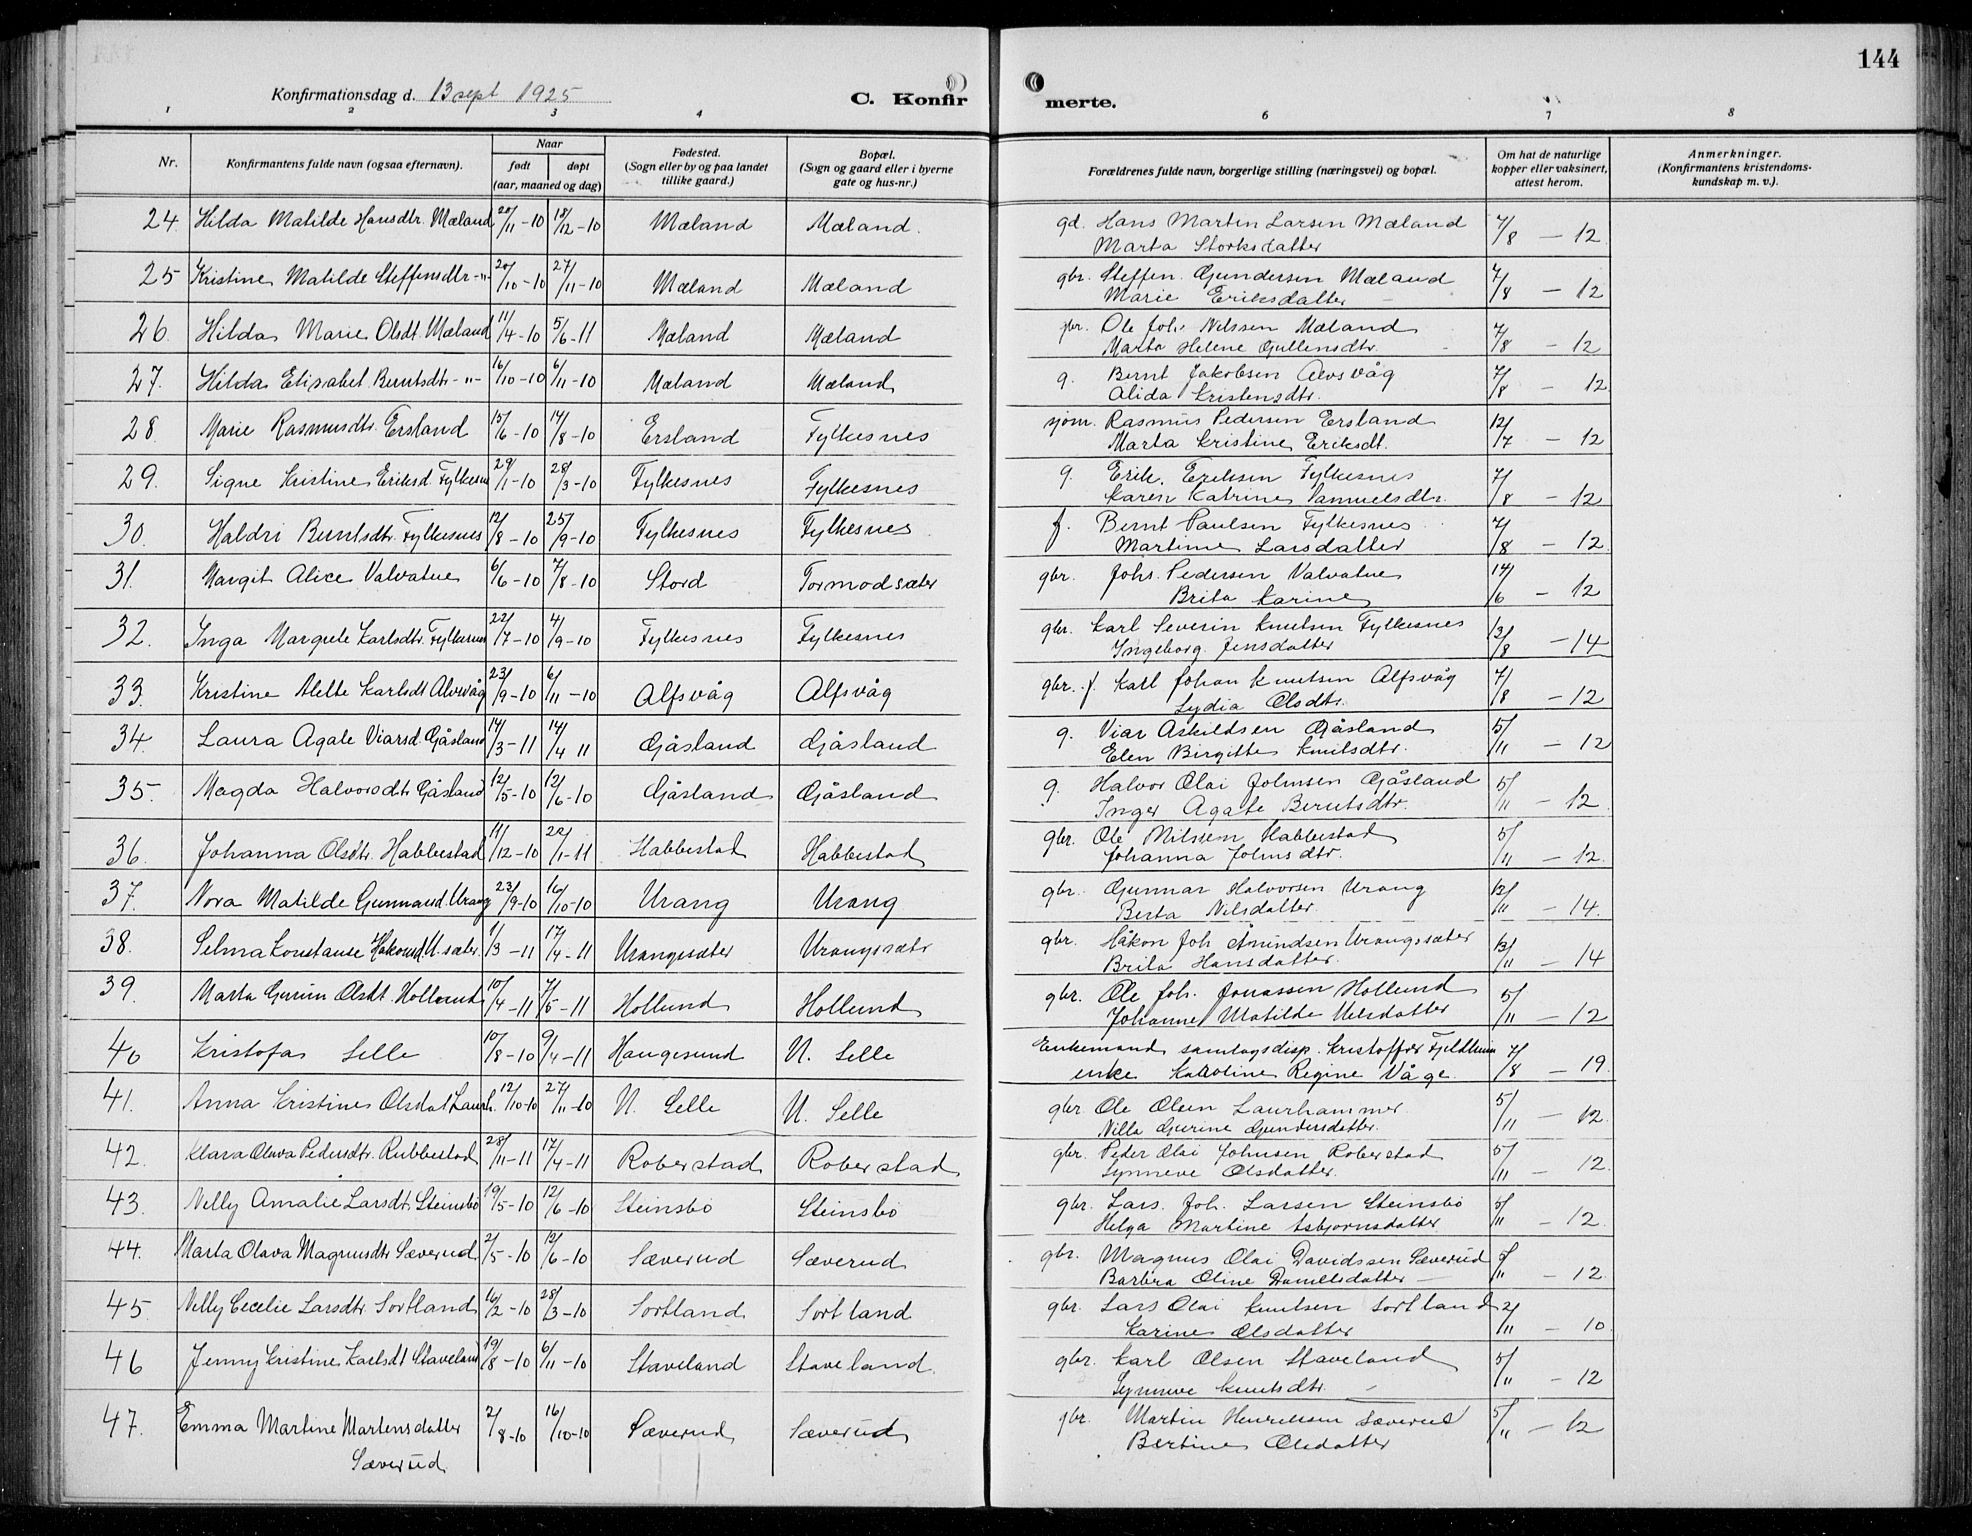 144
Konfirmationsdag d. 13 sept 1925
C. Konfirmerte.
1 2 3 4 6 7 8
Nr. Konfirmantens fulde navn (ogsaa efternavn). Naar født døpt (aar, maaned og dag) Fødested. (Sogn eller by og paa landet tillike gaard.) Bopæl. (Sogn og gaard eller i byerne gate og hus-nr.) Forældrenes fulde navn, borgerlige stilling (næringsvei) og bopæl. Om hat de naturlige kopper eller vaksinert, attest herom. Anmerkninger. (Konfirmantens kristendoms-kundskap m. v.).
24. Hilda Matilde Hansdtr. Mæland 20/11-10 18/12-10 Mæland Mæland. gd. Hans Martin Larsen Mæland 7/8 - 12
Marta Storksdatter
25 Kristine Matilde Steffensdtr -"- 20/10-10 27/11-10 Mæland Mæland gbr. Steffen Gundersen Mæland 7/8 - 12
Marie Eriksdatter
26. Hilda Marie Olsdt. Mæland 11/4-10 5/6-11 Mæland Mæland gbr. Ole Joh. Nilssen Mæland 7/8 - 12
Marta Helene Gullensdtr.
27. Hilda Elisabet Berntsdtr -"- 16/10-10 6/11-10 Mæland Mæland g. Bernt Jakobsen Alvsvåg 7/8 - 12
Alida Kristensdtr.
28. Marie Rasmusdtr. Ersland 15/6-10 14/8-10 Ersland Fylkesnes sjøm. Rasmus Pedersen Ersland 12/7 - 12
Marta Kristine Eriksdt.
29. Signe Kristine Eriksd. Fylkesnes 29/1-10 28/3-10 Fylkesnes Fylkesnes g. Erik Eriksen Fylkesnes 7/8 - 12
Karen Katrine Samuelsdtr.
30. Haldri Berntsdtr. Fylkesnes 12/8-10 25/9-10 Fylkesnes Fylkesnes f. Bernt Paulsen Fylkesnes 7/8 - 12.
Martine Larsdatter
31. Margit Alice Valvatne 6/6-10 7/8-10 Stord Tormodsæter gbr. Johs. Pedersen Valvatne 14/6 - 12
Brita Karine
32. Inga Margrete Karlsdtr. Fylkesnes 22/7-10 4/9-10 Fylkesnes Fylkesnes gbr. Karl Severin Knutsen Fylkesnes 13/8 - 14
Ingeborg Jensdatter
33. Kristine Alette Karlsdt. Alvsvåg 23/9-10 6/11-10 Alfsvåg Alfsvåg gbr. f. Karl Johan Knutsen Alfsvåg 7/8 - 12
Lydia Olsdtr.
34. Laura Agate Viarsd. Gåsland 14/3-11 14/4 11 Gåsland Gåsland g. Viar Askildsen Gåsland 5/11 - 12
Elen Birgitte Knutsdtr.
35. Magda Halvorsdtr Gåsland 12/5-10 12/6-10 Gåsland Gåsland g. Halvor Olai Johnsen Gåsland 5/11 - 12
Inger Agate Berntsdtr.
36. Johanna Olsdtr. Habbestad 11/12-10 22/1-11 Habbestad Habbestad gbr. Ole Nilssen Habbestad 5/11 - 12.
Johanna Johnsdtr.
37. Nora Matilde Gunnarsd. Urang 23/9-10 16/10-10 Urang Urang gbr. Gunnar Halvorsen Urang 12/11 - 14.
Berta Nilsdatter.
38. Selma Konstanse Håkonsd. U.sæter. 1/3-11 17/4-11 Urangsæter Urangsætr gbr. Håkon Joh. Åmundsen Urangsæter 13/11 - 14
Brita Hansdatter.
39. Marta Gurine Olsdt. Hollund 10/4-11 7/5-11 Hollund Hollund gbr. Ole Joh. Jonassen Hollund 5/11 - 12
Johanne Matilde Nilsdatter
40 Kristofa Selle 10/8-10 9/4-11 Haugesund N. Selle Enkemand samlagsdisp. Kristoffer Fjeldheim 7/8 - 19.
enke Karoline Regine Våge.
41. Anna Kristine Olsdat. Laurh. 12/10-10 27/11-10 N. Selle N. Selle gbr Ole Olsen Laurhammer 5/11 - 12
Nilla Gurine Gundersdatter.
42. Klara Olava Pedersdtr. Rubbestad 28/11-11 17/4-11 Roberstad Roberstad gbr. Peder Olai Johnsen Roberstad 5/11 - 12.
Synneve Olsdatter.
43. Nelly Amalie Larsdt. Steinsbø 19/5-10 12/6-10 Steinsbø Steinsbø gbr. Lars Joh. Larsen Steinsbø 5/11 - 12.
Helga Martine Asbjørnsdatter
44. Marta Olava Magnusdtr Sæverud. 2/5-10 12/6-10 Sæverud Sæverud gbr. Magnus Olai Davidssen Sæverud 5/11 - 12
Barbra Oline Danielsdatter
45 Nelly Cecelie Larsdtr. Sortland 16/2-10 28/3-10 Sortland Sortland gbr. Lars Olai Knutsen Sortland 2/11 - 10
Karine Olsdatter
46 Jenny Kristine Karlsdt Staveland 19/8-10 6/11-10 Staveland Staveland. gbr. Karl Olsen Staveland 5/11 - 12
Synneve Knutsdtr.
47. Emma Martine Martensdatter 2/8-10 16/10-10 Sæverud Sæverud gbr. Martin Henriksen Sæverud 5/11 - 12
Sæverud Bertine Olsdatter